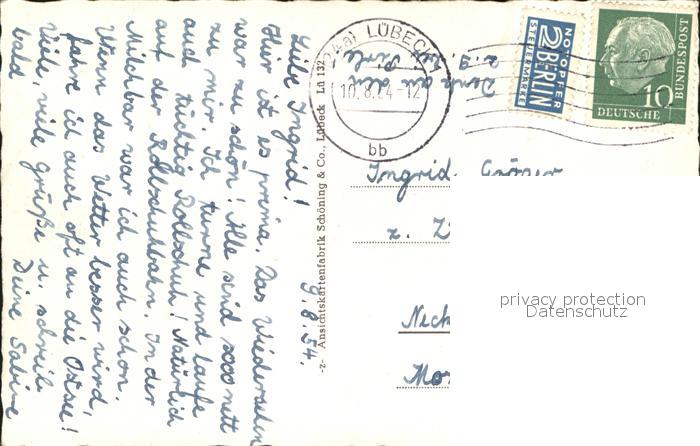 9.8.54.
Liebe Ingrid!
Hier ist es prema. Das Wiedersehen
war zu schön! Alle sind sooo nett
zu mir. Ich turne und laufe
auch tüchtig Rollschuh! Natürlich
auf der Rollschuhbahn. In der
Milchbar war ich auch schon.
Wenn das Wetter besser wird,
fahre ich auch oft an die Ostsee!
Viele, viele Grüße u. schreib
bald Deine Sabine
-z- Ansichtskartenfabrik Schöning & Co., Lübeck Lü 132
LÜBECK
10.8.54-12
bb
NOTOPFER
2 BERLIN
STEUERMARKE
DEUTSCHE
BUNDESPOST
10
Ingrid
z.
privacy protection
Datenschutz